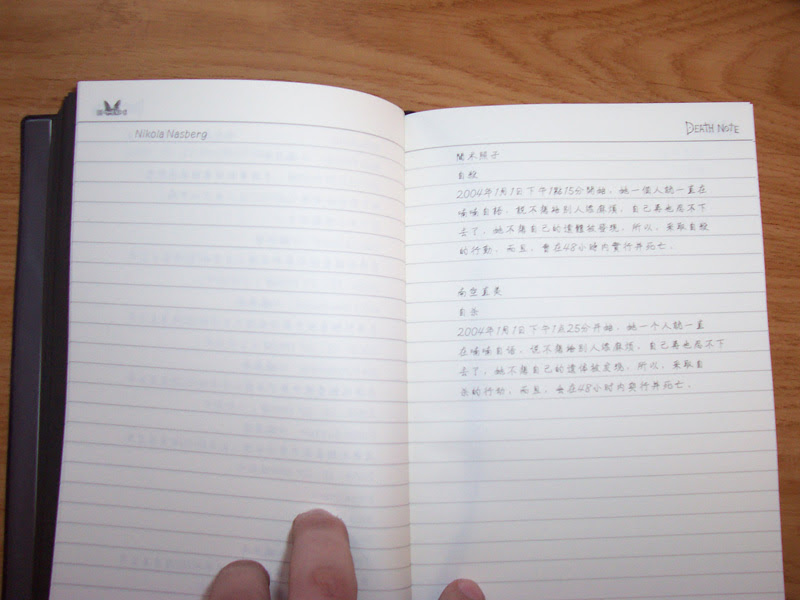 Nikola Nasberg
DEATH NOTE
間木照子
自殺
2004年1月1日下午1點15分開始，她一個人就一直在
喃喃自語，說不想給別人添麻煩，自己再也忍不下
去了，她不想自己的遺體被發現，所以，采取自殺
的行動，而且，會在48小时内實行并死亡.
南空直美
自杀
2004年1月1日下午1点25分开始，她一个人就一直
在喃喃自语，说不想给别人添麻烦，自己再也忍不下
去了，她不想自己的遗体被发现，所以，采取自
杀的行动，而且，会在48小时内实行并死亡.